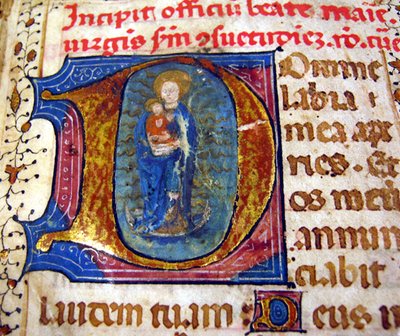 Incipit officiu beate marie
virgis scdm ꝯsuetudiez ro. cue
Domine
labia
mea ape
ries. Et
os meu
annun
ciabit
laudem tuam. Deus in